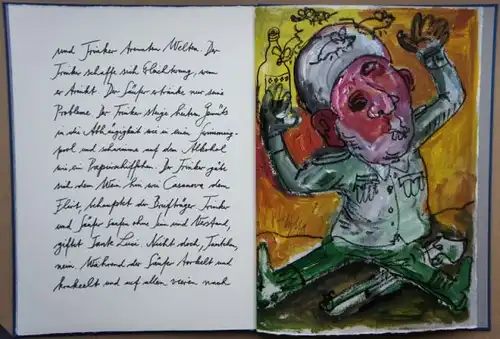 und Trinker trennten Welten. Der
Trinker schaffe sich Erleichterung, wenn
er trinkt. Der Säufer ertränke nur seine
Probleme. Der Trinker steige heiteren Gemüts
in die Abhängigkeit wie in einen Swimming-
pool und schwimme auf dem Alkohol
wie ein Papierschiffchen. Der Trinker gäbe
sich dem Wein hin wie Casanova dem
Flirt, behauptet der Briefträger. Trinker
und Säufer saufen ohne Sinn und Verstand,
giftet Tante Luci. Nicht doch, Tantchen,
nein. Während der Säufer torkelt und
und auf allen vieren nach